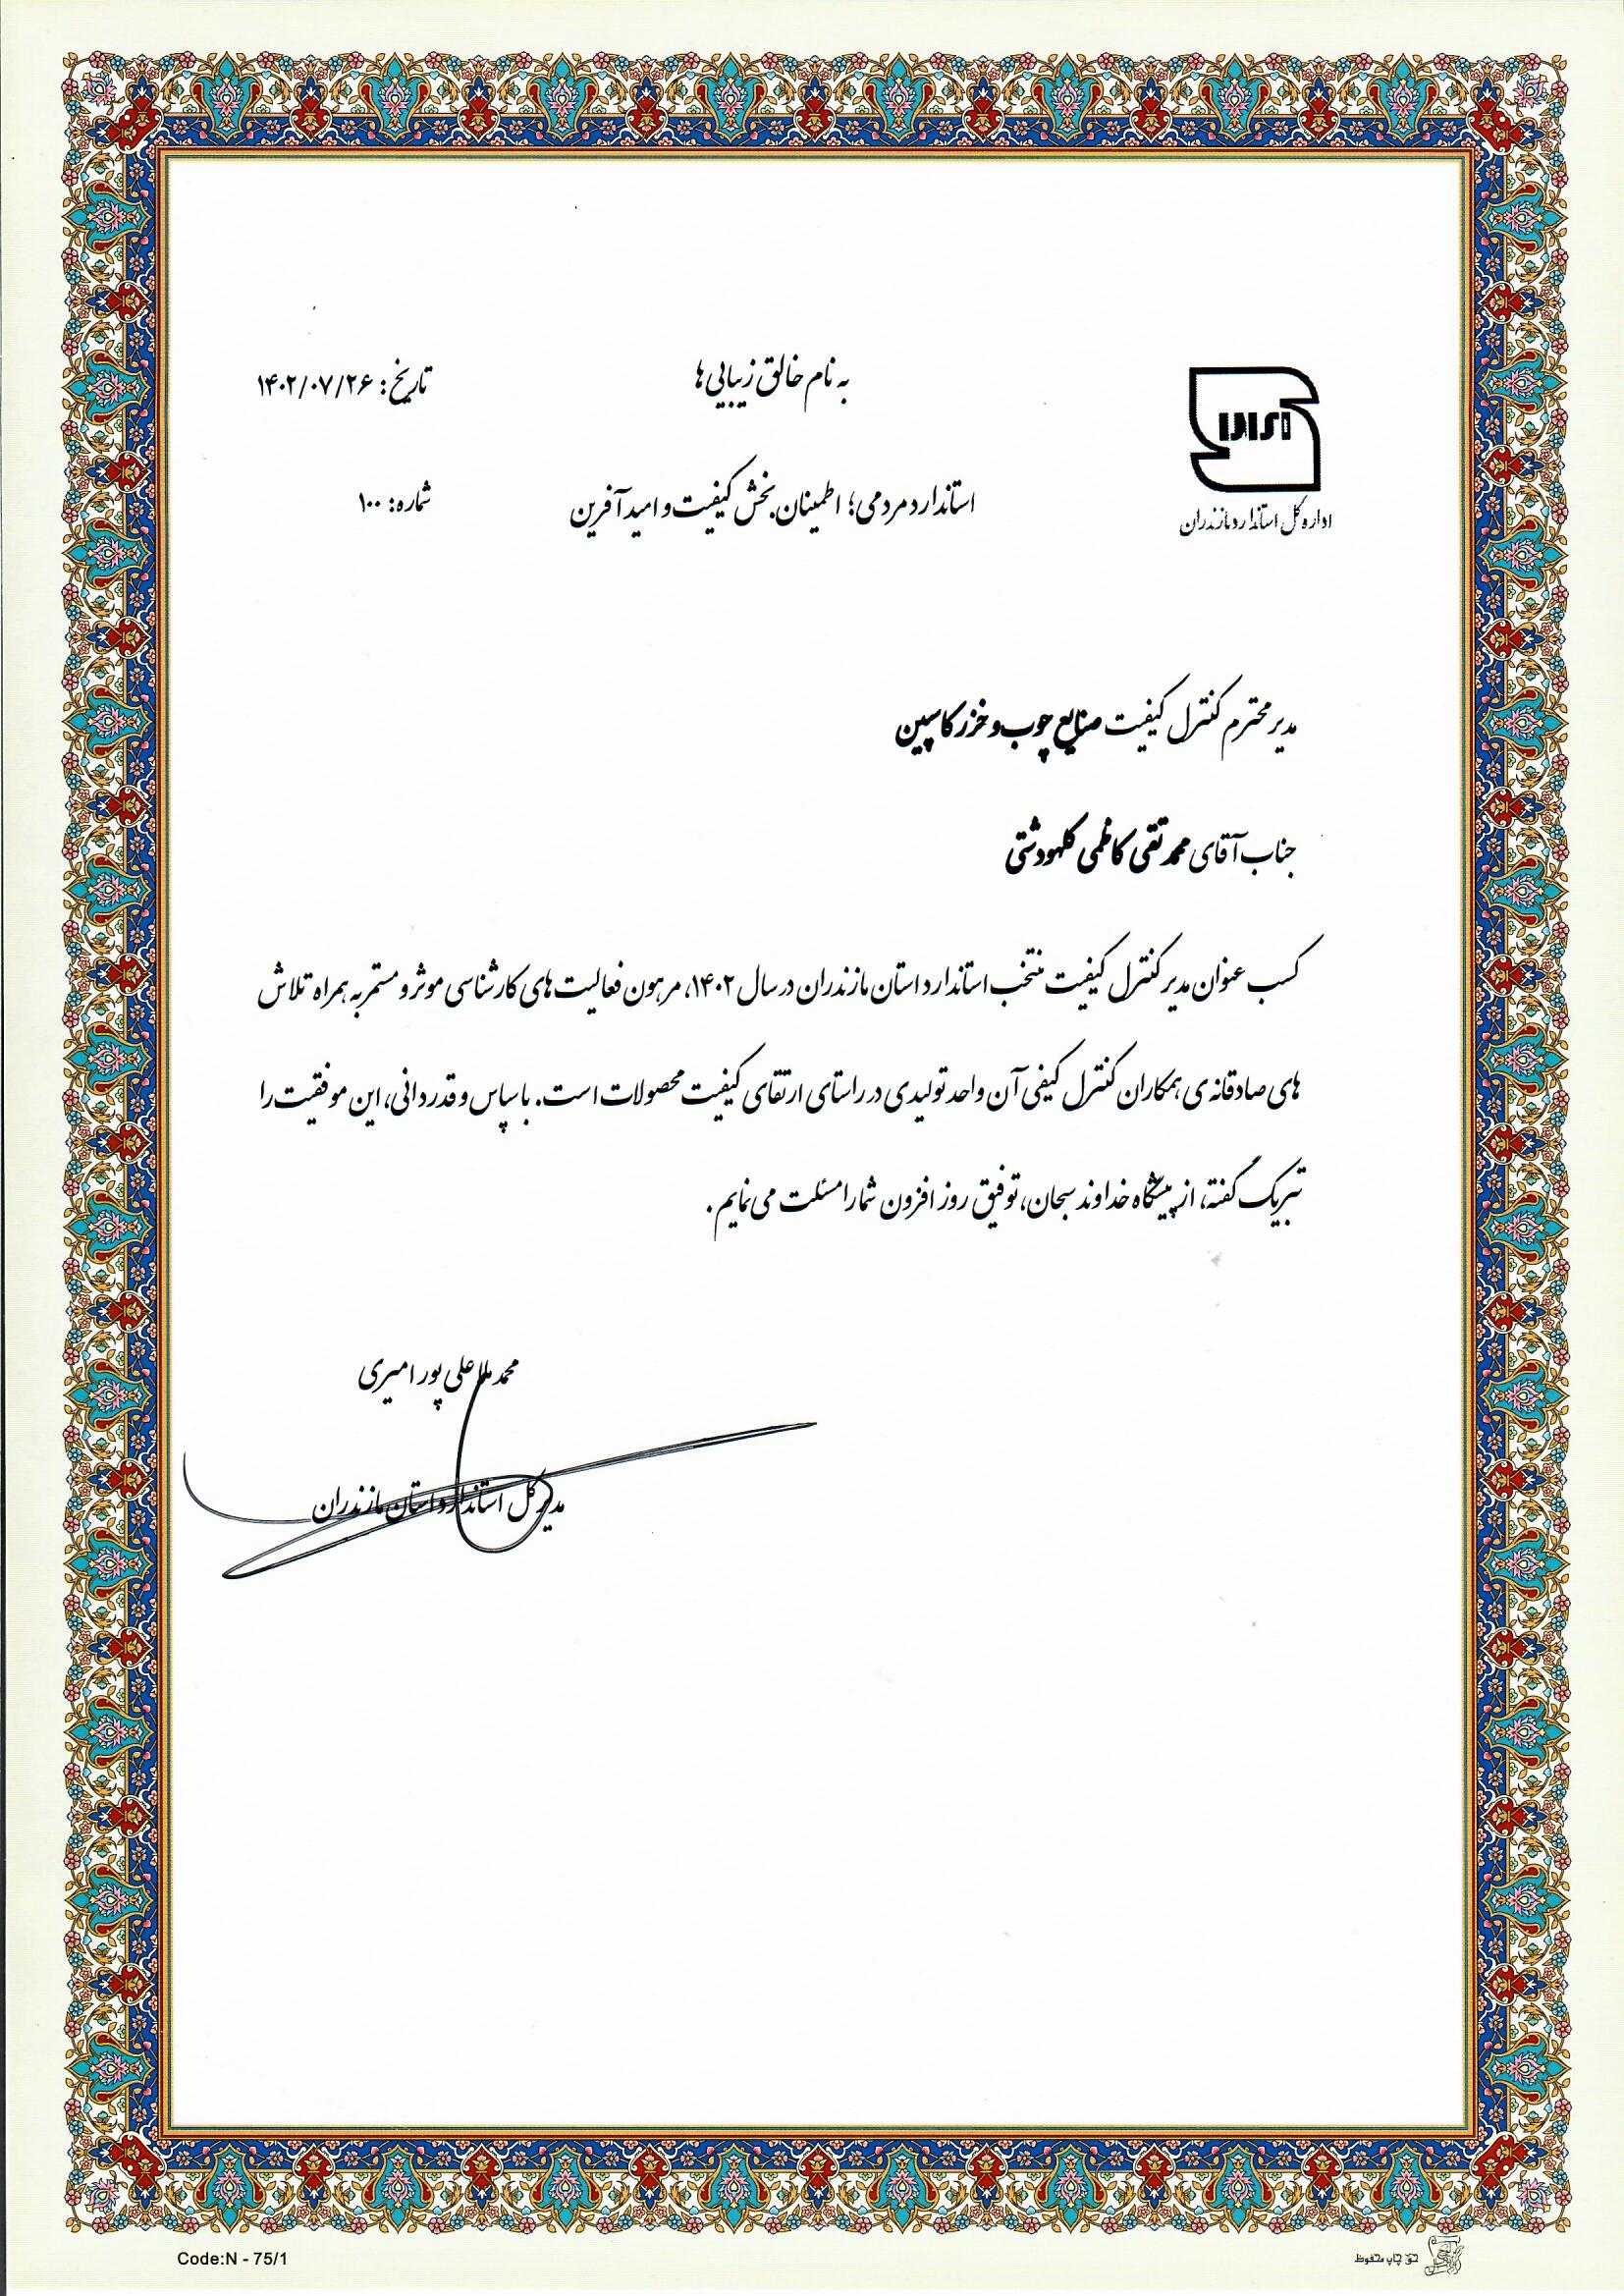 به نام خالق زیبایی ها
تاریخ: ۱۴۰۲/۰۷/۲۶
استاندارد مردمی؛ اطمینان بخش کیفیت و امید آفرین
شماره: ۱۰۰
اداره کل استاندارد مازندران
مدیر محترم کنترل کیفیت صنایع چوب و خزر کاسپین
جناب آقای محمد تقی کاظمی کلهودشتی
کسب عنوان مدیر کنترل کیفیت منتخب استاندارد استان مازندران در سال ۱۴۰۲، مرهون فعالیت های کارشناسی موثر و مستمر به همراه تلاش
های صادقانه ی همکاران کنترل کیفی آن واحد تولیدی در راستای ارتقای کیفیت محصولات است. با سپاس و قدردانی، این موفقیت را
تبریک گفته، از پیشگاه خداوند سبحان، توفیق روز افزون شما را مسئلت می نمایم.
محمد ملا علی پور امیری
مدیر کل استاندارد استان مازندران
Code:N - 75/1
حق چاپ محفوظ